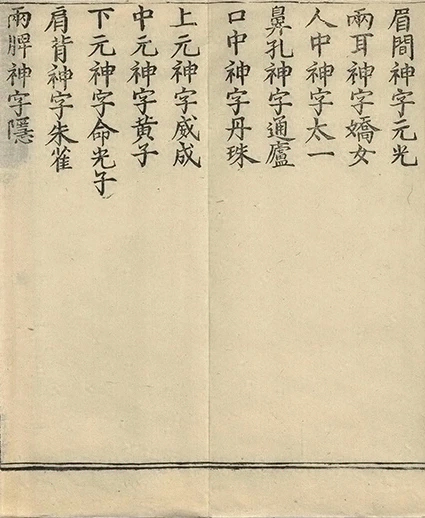 眉間神字元光
兩耳神字嬌女
人中神字太一
鼻孔神字通廬
口中神字丹珠
上元神字威成
中元神字黃子
下元神字命光子
肩背神字朱雀
兩脾神字隱